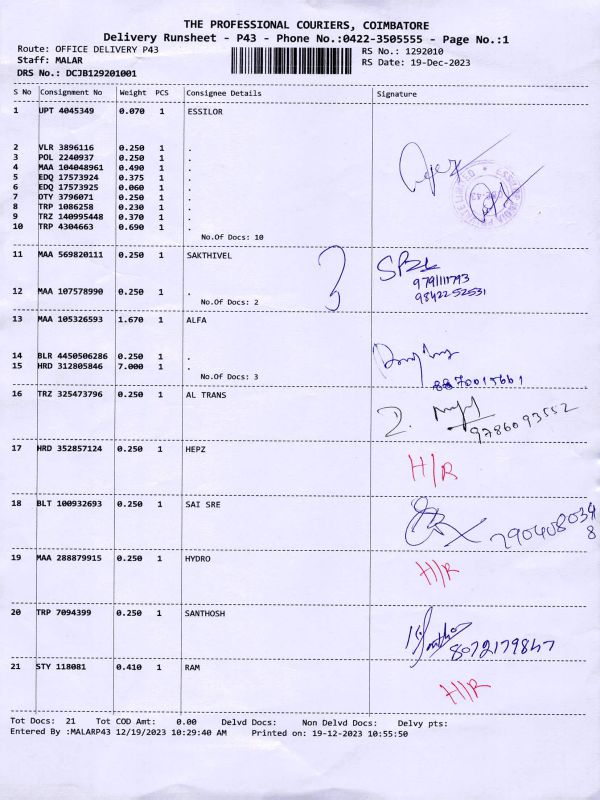 THE PROFESSIONAL COURIERS, COIMBATORE
Delivery Runsheet - P43 - Phone No.:0422-3505555 - Page No.:1
Route: OFFICE DELIVERY P43 RS No.: 1292010
Staff: MALAR RS Date: 19-Dec-2023
DRS No.: DCJB129201001
S No Consignment No Weight PCS Consignee Details Signature
1 UPT 4045349 0.070 1 ESSILOR
2 VLR 3896116 0.250 1 .
3 POL 2240937 0.250 1 .
4 MAA 104048961 0.490 1 .
5 EDQ 17573924 0.375 1 .
6 EDQ 17573925 0.060 1 .
7 DTY 3796071 0.250 1 .
8 TRP 1086258 0.230 1 .
9 TRZ 140995448 0.370 1 .
10 TRP 4304663 0.690 1 .
No.Of Docs: 10
11 MAA 569820111 0.250 1 SAKTHIVEL
9791111793
12 MAA 107578990 0.250 1 .
9842252531
No.Of Docs: 2
13 MAA 105326593 1.670 1 ALFA
14 BLR 4450506286 0.250 1 .
15 HRD 312805846 7.000 1 .
No.Of Docs: 3
8870015661
16 TRZ 325473796 0.250 1 AL TRANS
9786093552
17 HRD 352857124 0.250 1 HEPZ
H/R
18 BLT 100932693 0.250 1 SAI SRE
7904080348
19 MAA 288879915 0.250 1 HYDRO
H/R
20 TRP 7094399 0.250 1 SANTHOSH
8072179847
21 STY 118081 0.410 1 RAM
H/R
Tot Docs: 21 Tot COD Amt: 0.00 Delvd Docs: Non Delvd Docs: Delvy pts:
Entered By :MALARP43 12/19/2023 10:29:40 AM Printed on: 19-12-2023 10:55:50